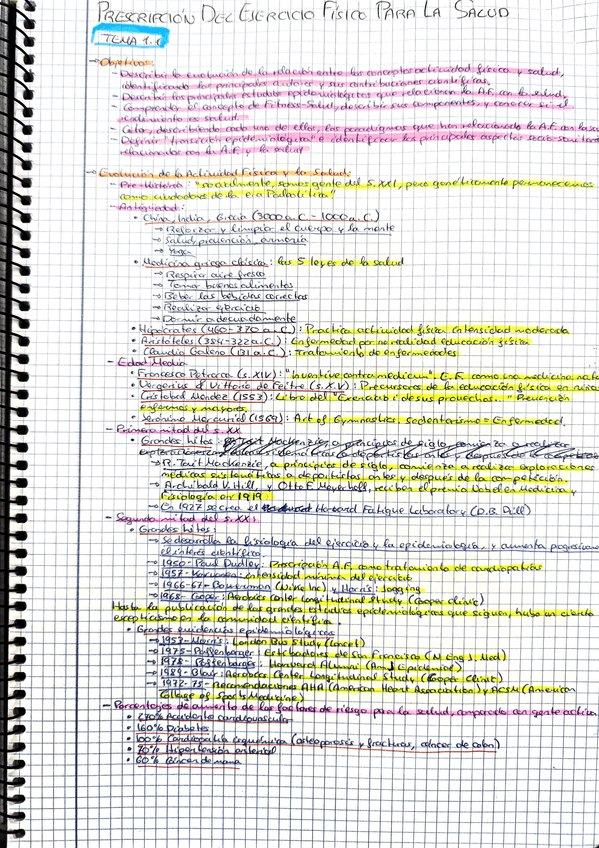 PRESCRIPCIÓN DEL EJERCICIO FÍSICO PARA LA SALUD
TEMA 1.1
→ Objetivos:
- Describir la evolución de la relación entre los conceptos actividad física y salud,
identificando los principales autores y sus contribuciones científicas.
- Describir los principales estudios epidemiológicos que relacionan la A.F. con la salud.
- Comprender el concepto de Fitness-Salud, describir sus componentes, y conocer si el
rendimiento es salud.
- Citar, describiendo cada uno de ellos, los paradigmas que han relacionado la A.F. con la
- Definir transición epidemiológica e identificar los principales aspectos
relacionados con la A.F. y la salud
→ Evolución de la Actividad Física y la Salud:
- Pre-Historia: "socialmente, somos gente del S.XXI, pero genéticamente permanecemos
como ciudadanos de la era Paleolítica"
- Antigüedad:
• China, India, Grecia (3000 a.C - 1000 a.C.)
→ Reforzar y limpiar el cuerpo y la mente
→ Salud, prevención, armonía
→ Yoga
• Medicina griega clásica: las 5 leyes de la salud
→ Respirar aire fresco
→ Tomar buenos alimentos
→ Beber las bebidas correctas
→ Realizar ejercicio
→ Dormir adecuadamente
• Hipócrates (460-370 a.C.): Practica actividad física intensidad moderada
• Aristóteles (354-322 a.C.): Enfermedad por no realidad educación física
• Claudio Galeno (131 a.C.): Tratamiento de enfermedades
- Edad Media
• Francesco Petrarca (s.XIV): "Inventive contra medicum". E.F. como una medicina
• Vergerius & Vittorio de Feltre (s.XV): Precursores de la educación física en
• Cristobal Mendez (1553): Libro del "Exercicio" de sus provechos. "Prevención
enfermos y mayores.
• Jerónimo Mercurial (1569): Art of Gymnastics. Sedentarismo = Enfermedad.
- Primera mitad del s.XX
• Grandes hitos:
→ R. Tait Mackenzie, a principios de siglo, comienza a realizar exploraciones
médicas sistemáticas a deportistas antes y después de la competición
→ Archibald V. Hill y Otto F. Meyerhoff, reciben el premio Nobel en Medicina y
Fisiología en 1919
→ En 1927 se crea el Harvard Fatigue Laboratory (D.B. Dill)
- Segunda mitad del s.XX:
• Grandes hitos:
→ Se desarrolla la fisiología del ejercicio y la epidemiología, y aumenta
el interés científico.
→ 1950 - Paul Dudley: Prescripción A.F. como tratamiento de cardiopatías
→ 1957 - Karvonen: intensidad mínima del ejercicio
→ 1966-67 - Bowerman (Nike Inc) y Harris: Jogging
→ 1968 - Cooper: Aerobics Center Longitudinal Study (Cooper Clinic)
Hasta la publicación de los grandes estudios epidemiológicos que siguen, hubo un cierto
escepticismo en la comunidad científica.
• Grandes evidencias epidemiológicas
→ 1953 - Morris: London Bus Study (Lancet)
→ 1975 - Paffenbarger: Estibadores de San Francisco (N Eng J. Med)
→ 1978 - Paffenbarger: Harvard Alumni (Am J Epidemiol)
→ 1989 - Blair: Aerobics Center Longitudinal Study (Cooper Clinic)
→ 1972-75 - Recomendaciones AHA (American Heart Association) y ACSM (American
College of Sports Medicine)
- Porcentajes de aumento de los factores de riesgo para la salud, comparado con gente activa
• Accidente cardiovascular
• 160% Diabetes
• 100% Cardiopatía isquémica (osteoporosis y fracturas, cáncer de colon)
• 70% Hipertensión arterial
• 60% Cáncer de mama